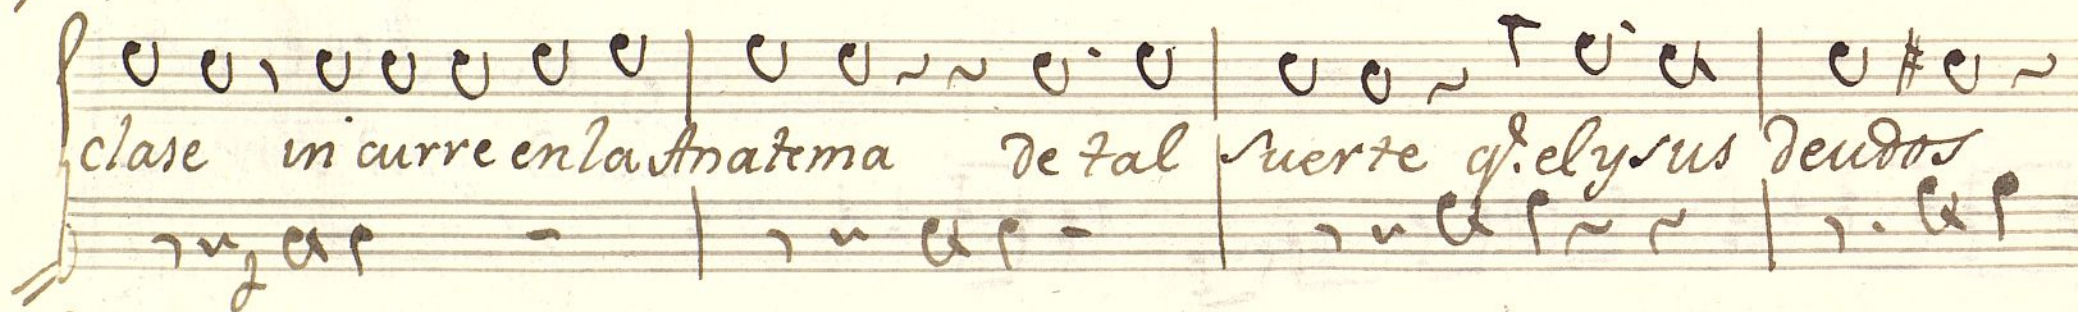 clase in curre en la Anatema de tal suerte q̃. el y sus deudos